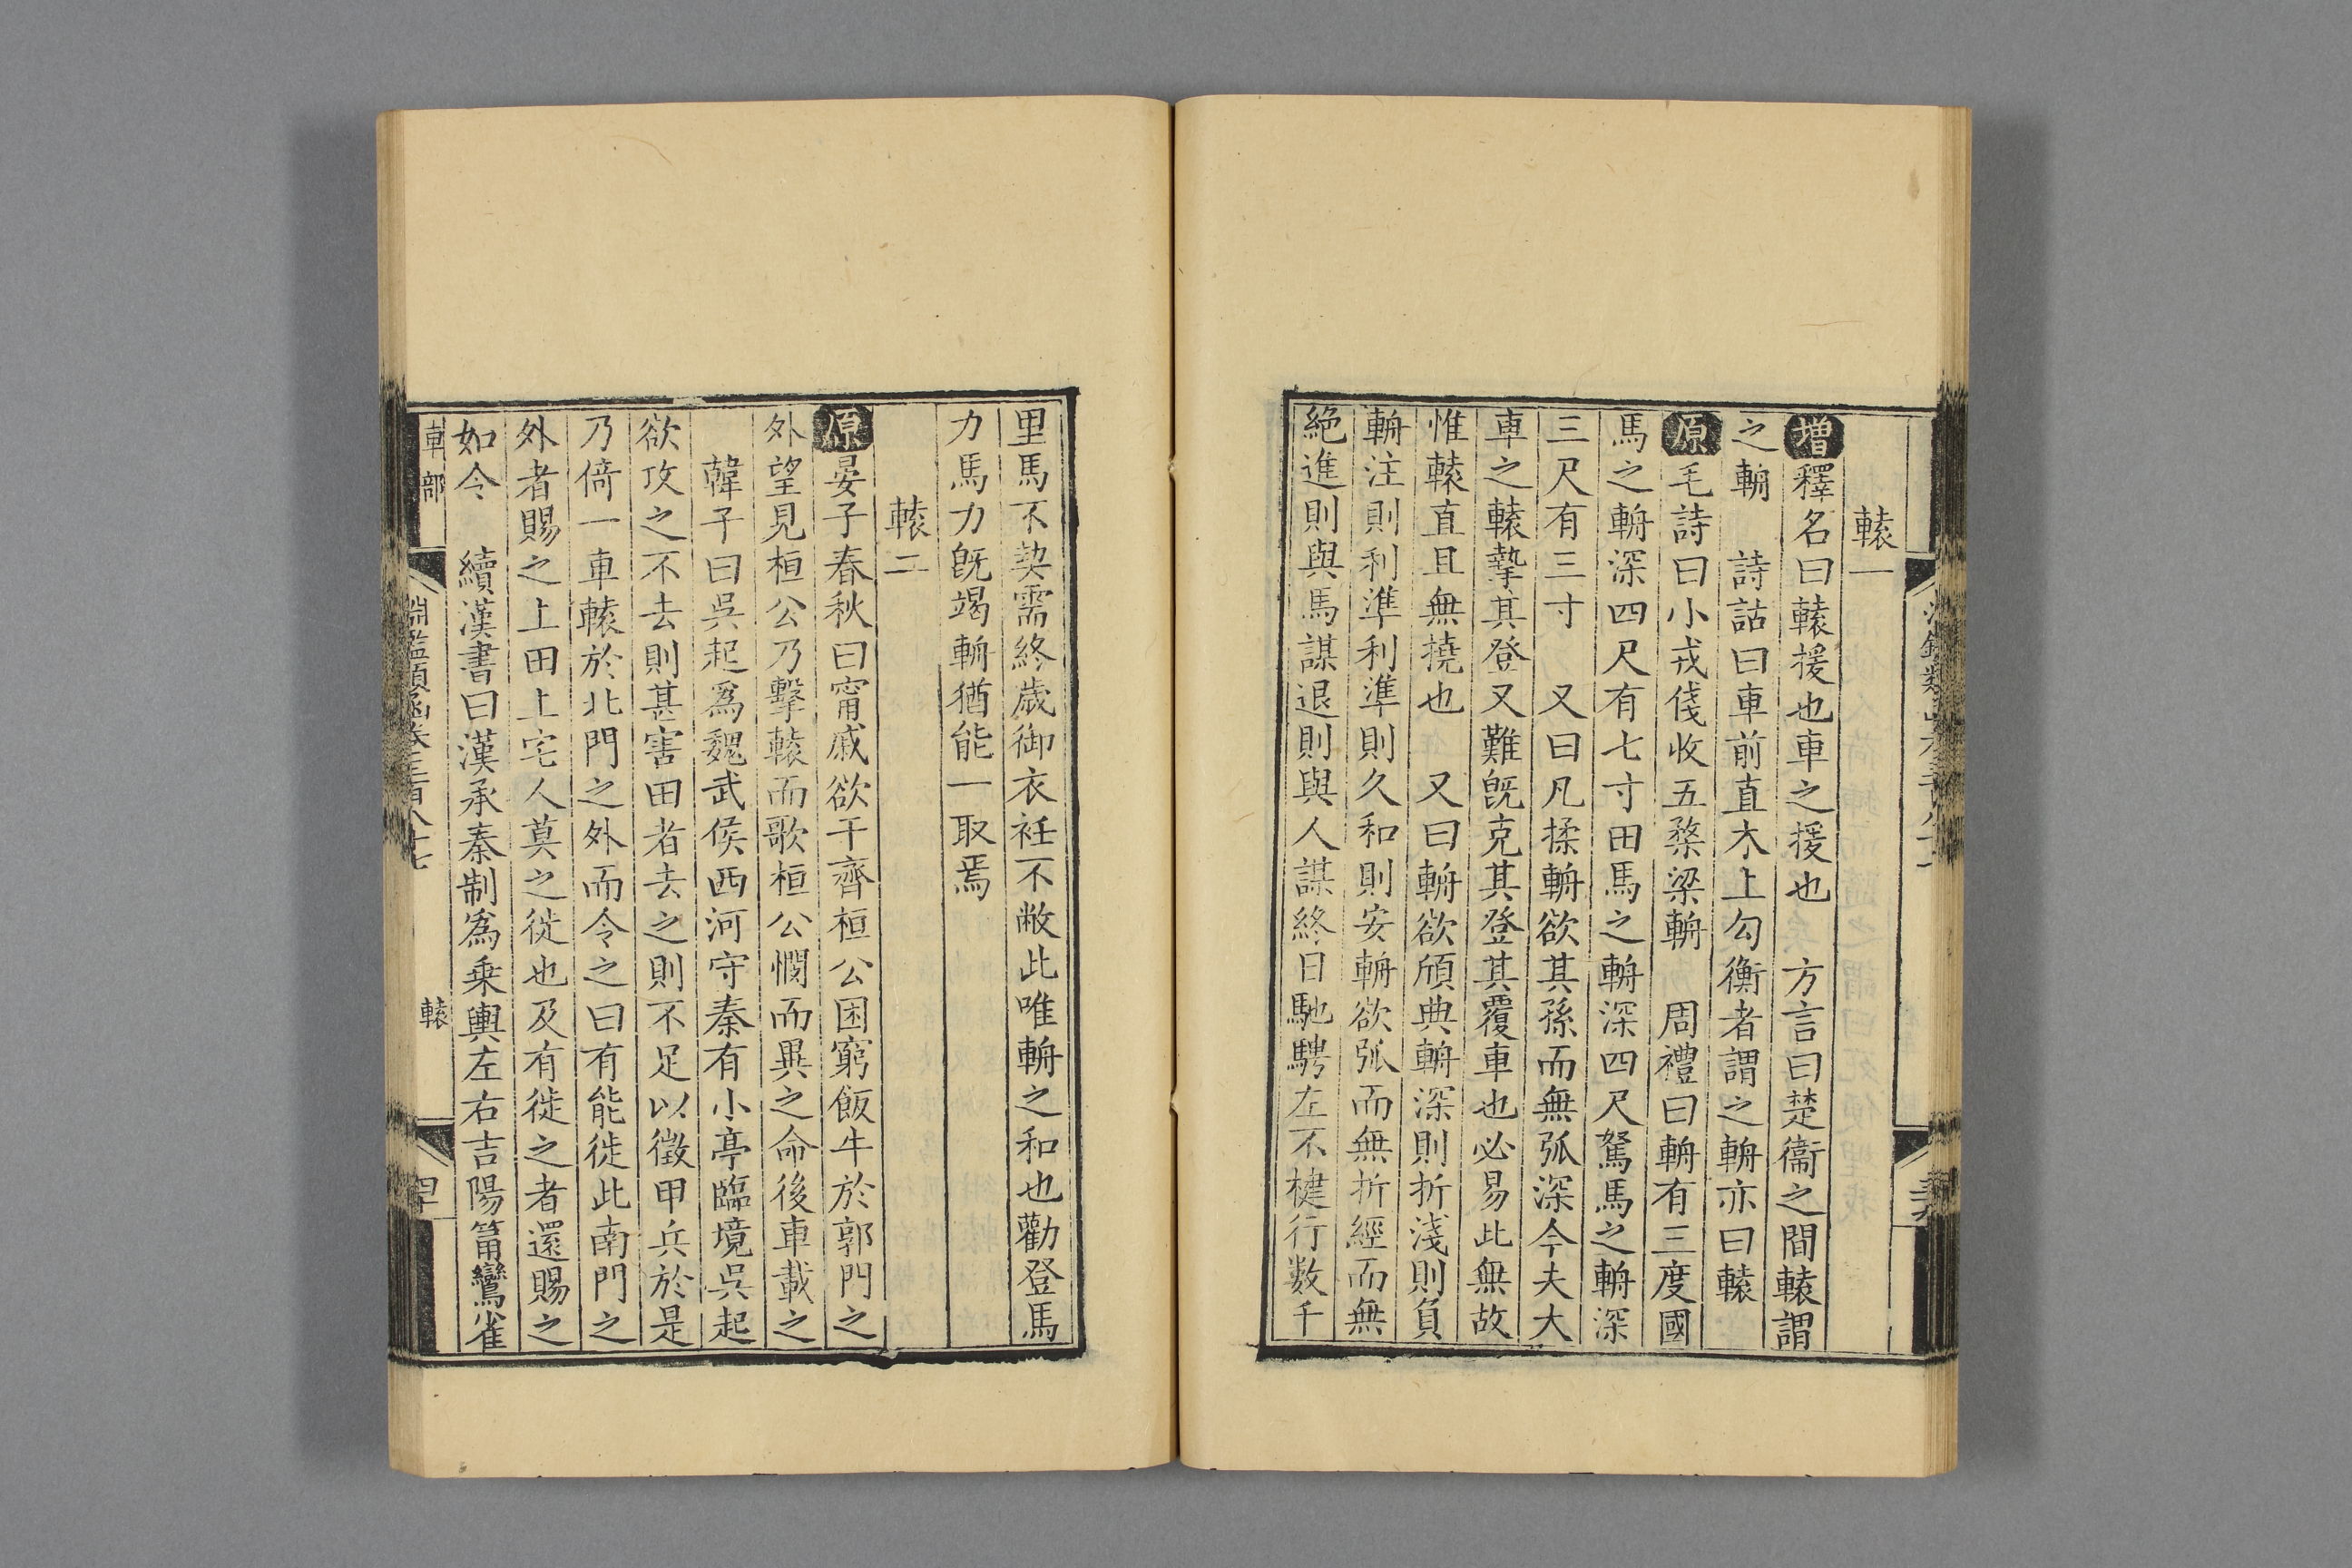 轅一
增釋名曰轅援也車之援也　方言曰楚衞之間轅謂
之輈　詩詁曰車前直木上勾衡者謂之輈亦曰轅
原毛詩曰小戎俴收五楘梁輈　周禮曰輈有三度國
馬之輈深四尺有七寸田馬之輈深四尺駑馬之輈深
三尺有三寸　又曰凡揉輈欲其孫而無弧深今夫大
車之轅摯其登又難旣克其登其覆車也必易此無故
惟轅直且無撓也　又曰輈欲頎典輈深則折淺則負
輈注則利準利準則久和則安輈欲弧而無折經而無
絕進則與馬謀退則與人謀終日馳騁左不楗行数千
里馬不契需終歲御衣衽不敝此唯輈之和也勸登馬
力馬力旣竭輈猶能一取焉
轅二
原晏子春秋曰甯戚欲干齊桓公困窮飯牛於郭門之
外望見桓公乃擊轅而歌桓公憫而異之命後車載之
韓子曰吳起爲魏武侯西河守秦有小亭臨境吳起
欲攻之不去則甚害田者去之則不足以徵甲兵於是
乃倚一車轅於北門之外而令之曰有能徙此南門之
外者賜之上田上宅人莫之徙也及有徙之者還賜之
如令　續漢書曰漢承秦制爲乘輿左右吉陽筩鸞雀
車部
淵鑑類函卷三百八十七
轅